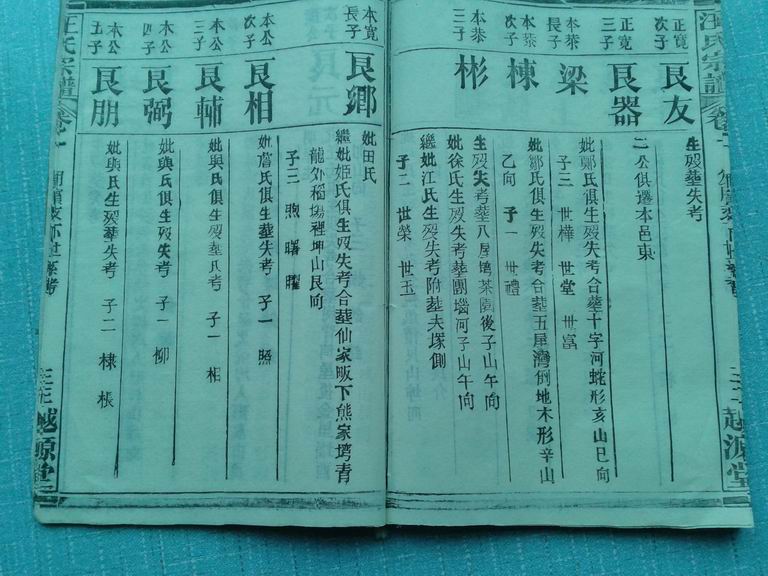 汪氏宗譜
越源堂
正寬
次子
艮友
生歿塟失考
正寬
三子
艮器
二公俱遷本邑東
本恭
長子
梁
妣鄭氏俱生歿失考合塟十字河蛇形亥山巳向
子三 世樺 世堂 世富
本恭
次子
棟
妣鄒氏俱生歿失考合塟五屋灣倒地木形辛山
乙向 子一 世禮
本恭
三子
彬
生歿失考塟八屋塆茶園後子山午向
妣徐氏生歿失考塟團墖河子山午向
繼妣江氏生歿失考附塟夫塚側
子二 世榮 世玉
本寬
長子
艮卿
妣田氏
繼妣姫氏俱生歿失考合塟仙家畈下熊家塆青
龍外稻場裡坤山艮向
子三 煦 曙 曜
本公
次子
艮相
妣詹氏俱生塟失考 子一 照
本公
三子
艮輔
妣與氏俱生歿塟氏考 子一 相
本公
四子
艮弼
妣與氏俱生歿失考 子一 柳
本公
五子
艮朋
妣與氏生歿塟失考 子二 棣 棖
汪氏宗譜
越源堂